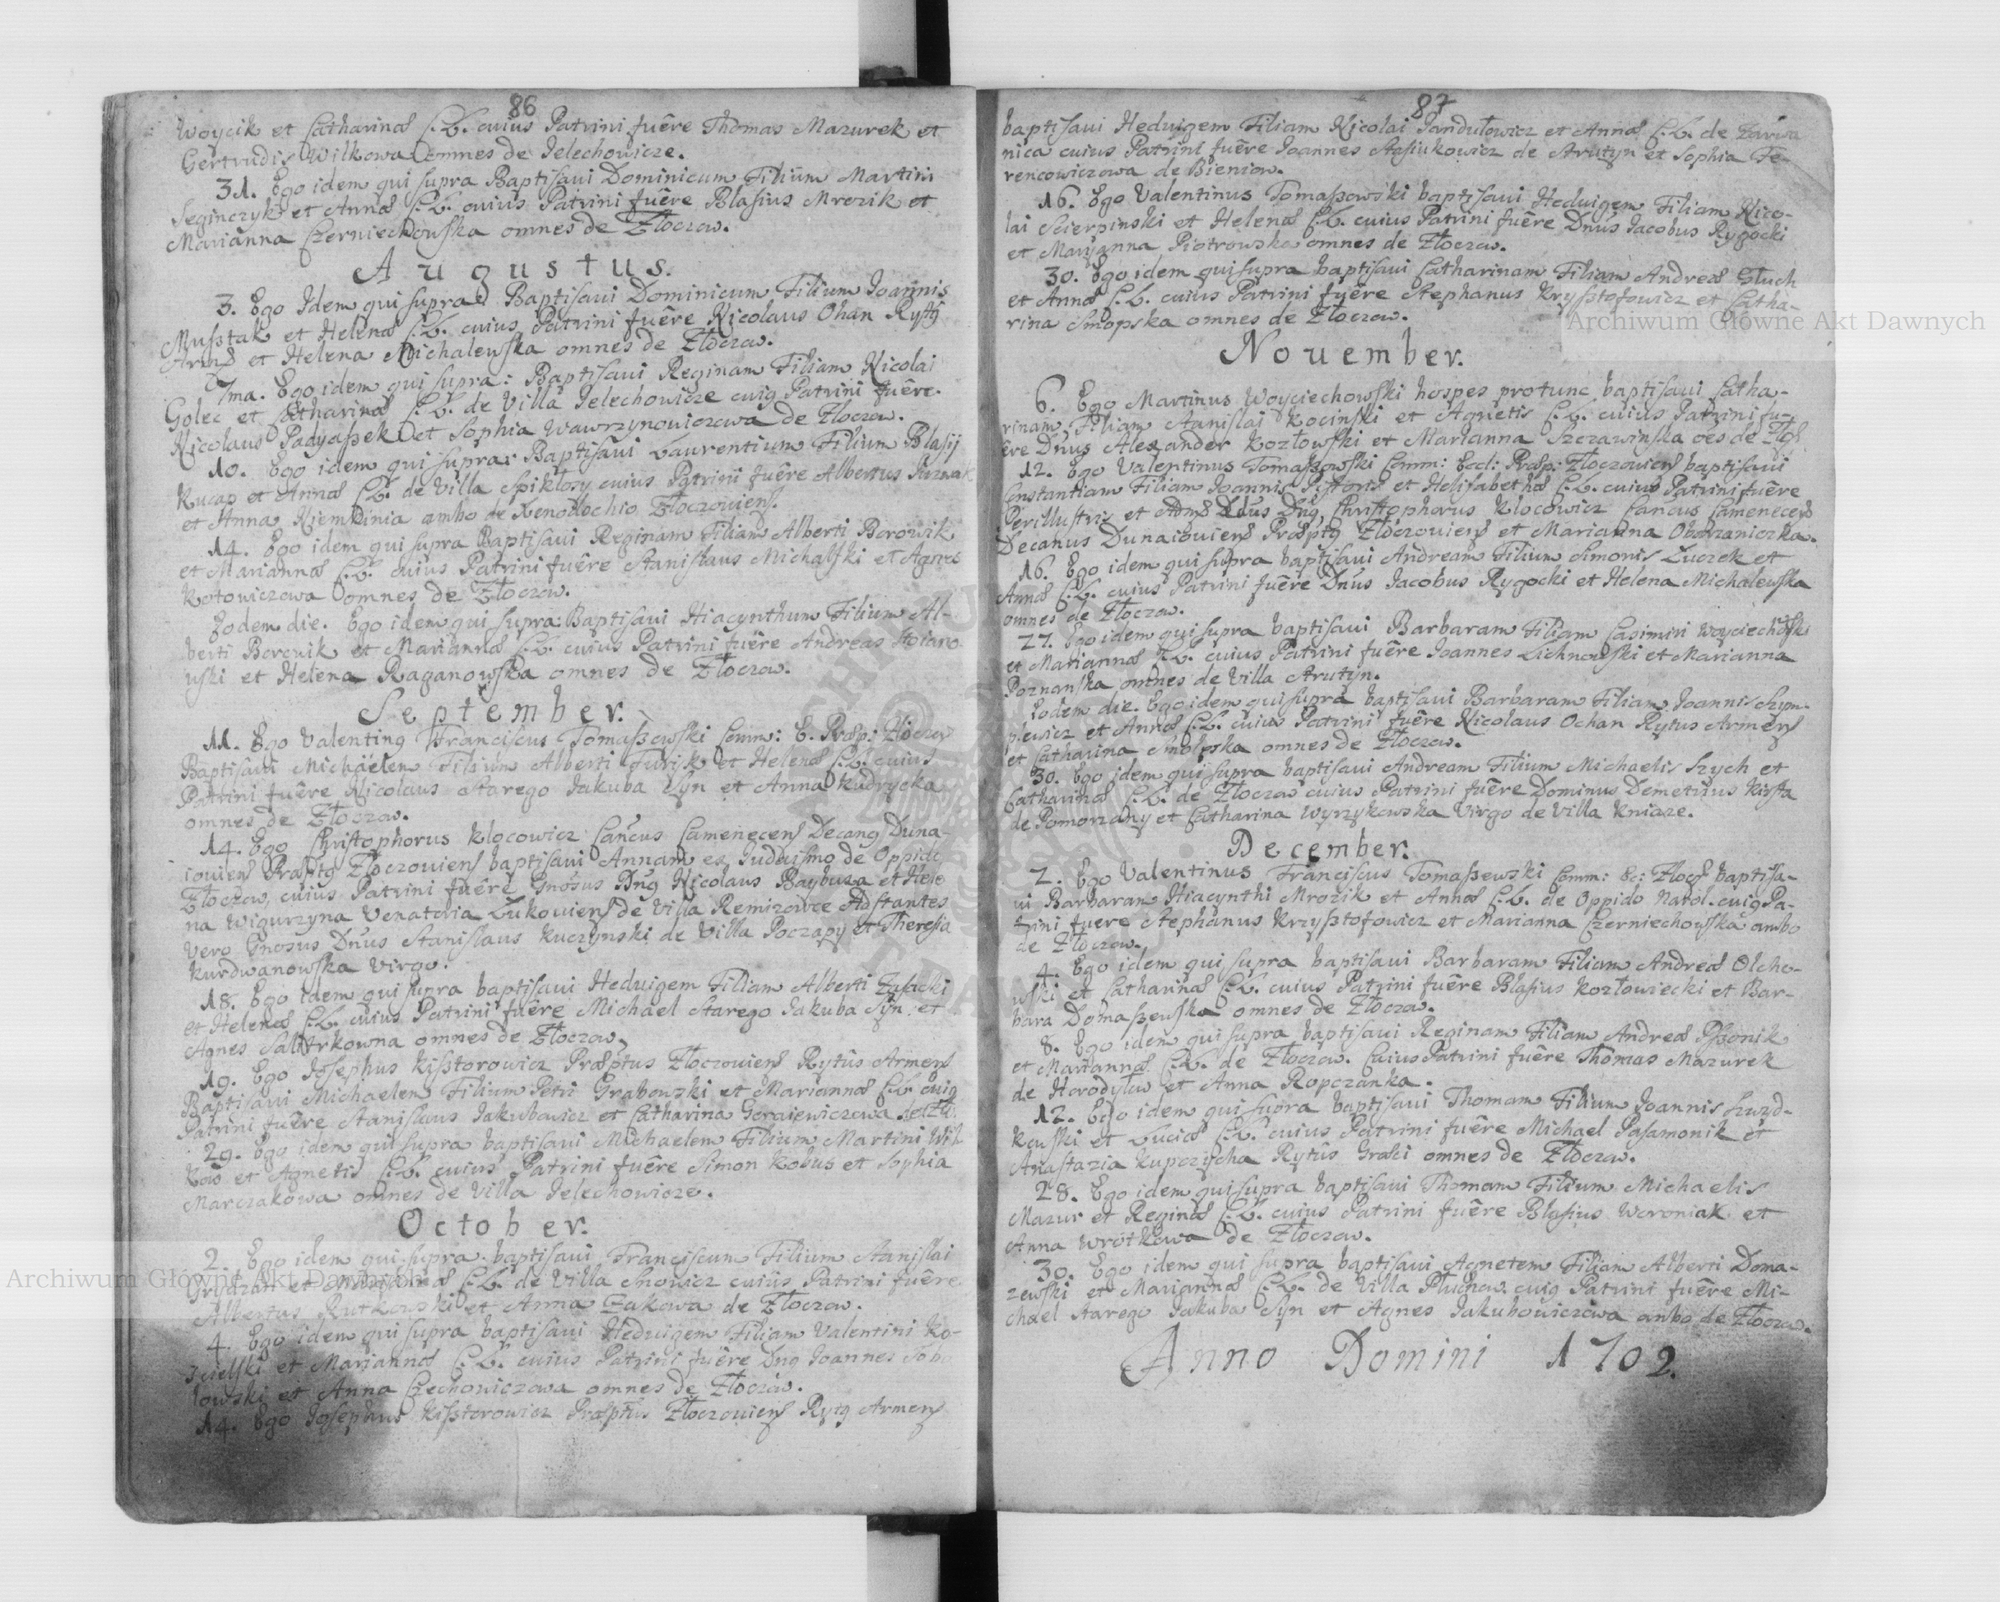 86
Woycik et Catharinæ C.L. cuius Patrini fuêre Thomas Mazurek et
Gertrudis Wilkowa omnes de Jelechowicze.
31. Ego idem qui supra Baptisaui Dominicum Filium Martini
Seginczyk et Annæ C.L. cuius Patrini fuêre Blasius Mrozik et
Marianna Czerniechowska omnes de Złoczow.
Augustus.
3. Ego Idem qui supra Baptisaui Dominicum Filium Joannis
Musstak et Helenæ C.L. cuius Patrini fuêre Nicolaus Ohan Rytq
Armēs et Helena Michalewska omnes de Złoczow.
7ma. Ego idem qui supra: Baptisaui Reginam Filiam Nicolai
Golec et Catharinæ C.L. de Villa Jelechowicze cuiq Patrini fuêre
Nicolaus Padyaßek et Sophia Wawrzynowiczowa de Złoczow.
10. Ego idem qui supra: Baptisaui Laurentium Filium Blasij
Kucap et Annæ C.L. de Villa Spiklosy cuius Patrini fuêre Albertus
et Anna Niemkinia ambo de Xenodochio Złoczouiens.
14. Ego idem qui supra Baptisaui Reginam Filiam Alberti Borowik
et Mariannæ C.L. cuius Patrini fuêre Stanislaus Michalski et Agnes
Kotowiczowa omnes de Złoczow.
Eodem die. Ego idem qui supra Baptisaui Hiacynthum Filium Al-
berti Borowik et Mariannæ C.L. cuius Patrini fuêre Andreas Stolaro
wski et Helena Raganowska omnes de Złoczow.
September.
11. Ego Valentinq Franciscus Tomaßewski Comm: E. Præp: Złoczou
Baptisaui Michaelem Filium Alberti Jurijk et Helenæ C.L. cuius
Patrini fuêre Nicolaus Starego Jakuba Syn et Anna Kudrycka
omnes de Złoczow.
14. Ego Christophorus Klocowicz Cancus Camenecens Decanq Duna-
iouiens Præptq Złoczouiens baptisaui Annam ex Judaismo de Oppido
Złoczow, cuius Patrini fuêre Gnosus Dnq Nicolaus Baybuza et Hele
na Wigurzyna Venatoria Zukouiens de Villa Remizowce Adstantes
vero Gnosus Dnus Stanislaus Kuczynski de Villa Poczapy et Theresia
Kurdwanowska Virgo.
18. Ego idem qui supra baptisaui Hedvigem Filiam Alberti Zasacki
et Helenæ C.L. cuius Patrini fuêre Michael Starego Jakuba Syn et
Agnes omnes de Złoczow.
19. Ego Josephus Kisstorowicz Præptus Złoczouiens Rytûs Armens
Baptisaui Michaelem Filium Petri Grabowski et Mariannæ C.L. cuiq
Patrini fuêre Stanislaus Jakubowicz et Catharina Geraiewiczowa
29. Ego idem qui supra baptisaui Michaelem Filium Martini Wil
kow et Agnetis C.L. cuius Patrini fuêre Simon Kobus et Sophia
Marczakowa omnes de Villa Jelechowicze.
October.
2. Ego idem qui supra baptisaui Franciscum Filium Stanislai
et C.L. de Villa Snowicz cuius Patrini fuêre
Albertus Rutkowski et Anna Zakowa de Złoczow.
4. Ego idem qui supra baptisaui Hedvigem Filiam Valentini Ko-
scielski et Mariannæ C.L. cuius Patrini fuêre Dnq Joannes Sobo
lowski et Anna Czechowiczowa omnes de Złoczow.
14. Ego Josephus Kisstorowicz Præptus Złoczouiens Rytq Armens
87
baptisaui Hedvigem Filiam Nicolai Jandulowicz et Annæ C.L. de Zarwa
nica cuius Patrini fuêre Joannes Stasiukowicz de Strutyn et Sophia Te-
rencowiczowa de Bieniow.
16. Ego Valentinus Tomaßowski baptisaui Hedvigem Filiam Nico-
lai Scierpinski et Helenæ C.L. cuius Patrini fuêre Dnus Jacobus Rygocki
et Maryanna Piotrowska omnes de Złoczow.
30. Ego idem qui supra baptisaui Catharinam Filiam Andreæ Głuch
et Annæ C.L. cuius Patrini fuêre Stephanus Krysstofowicz et Catha-
rina Snopska omnes de Złoczow.
Nouember.
6. Ego Martinus Woyciechowski hospes protunc baptisaui Catha-
rinam Filiam Stanislai Kocinski et Agnetis C.L. cuius Patrini fu-
êre Dnus Alexander Kozłowski et Marianna Szczawinska oes de Złoł
12. Ego Valentinus Tomaßowski Comm: Eccl: Præp: Złoczouiens baptisaui
Constantiam Filiam Joannis Pistoris et Helisabethæ C.L. cuius Patrini fuêre
Perillustris et Adms Rdus Dnq Christophorus Klocowicz Cancus Camenecens
Decanus Dunaiouiens Præptq Złoczouiens et Marianna Obotrzaniczka.
16. Ego idem qui supra baptisaui Andream Filium Simonis Luczek et
Annæ C.L. cuius Patrini fuêre Dnus Jacobus Rygocki et Helena Michalewska
omnes de Złoczow.
27. Ego idem qui supra baptisaui Barbaram Filiam Casimiri Woyciechowski
et Mariannæ C.L. cuius Patrini fuêre Joannes Lichnowski et Marianna
Poznanska omnes de Villa Strutyn.
Eodem die. Ego idem qui supra baptisaui Barbaram Filiam Joannis Szym-
plewicz et Annæ C.L. cuius Patrini fuêre Nicolaus Ochan Rytus Armens
et Catharina Snopska omnes de Złoczow.
30. Ego idem qui supra baptisaui Andream Filium Michaelis Szych et
Catharinæ C.L. de Złoczow cuius Patrini fuêre Dominus Demetrius Kista
de Pomorzany et Catharina Wyrzykowska Virgo de Villa Kniaze.
December.
2. Ego Valentinus Franciscus Tomaßewski Comm: Ec: Złocz baptisa-
ui Barbaram Hiacynthi Mrozik et Annæ C.L. de Oppido Narol. cuiq Pa-
trini fuere Stephanus Krzysstofowicz et Marianna Czerniechowska ambo
de Złoczow.
4. Ego idem qui supra baptisaui Barbaram Filiam Andreæ Olcho-
wski et Catharinæ C.L. cuius Patrini fuêre Blasius Kozłowiecki et Bar-
bara Domaßewska omnes de Złoczow.
8. Ego idem qui supra baptisaui Reginam Filiam Andreæ Pssonik
et Mariannæ C.L. de Złoczow. Cuius Patrini fuêre Thomas Mazurek
de Horodyłow et Anna Ropczanka.
12. Ego idem qui supra baptisaui Thomam Filium Joannis Szwyd-
kowski et Luciæ C.L. cuius Patrini fuêre Michael Pasamonik et
Anastazia Kupczycha Rytûs Græci omnes de Złoczow.
28. Ego idem qui supra baptisaui Thomam Filium Michaelis
Mazur et Reginæ C.L. cuius Patrini fuêre Blasius Woroniak et
Anna Wrotkowa de Złoczow.
30. Ego idem qui supra baptisaui Agnetem Filiam Alberti Doma-
zewski et Mariannæ C.L. de Villa Płuchow cuiq Patrini fuêre Mi-
chael Starego Jakuba Syn et Agnes Jakubowiczowa ambo de Złoczow.
Anno Domini 1702.
Archiwum Główne Akt Dawnych
Archiwum Główne Akt Dawnych